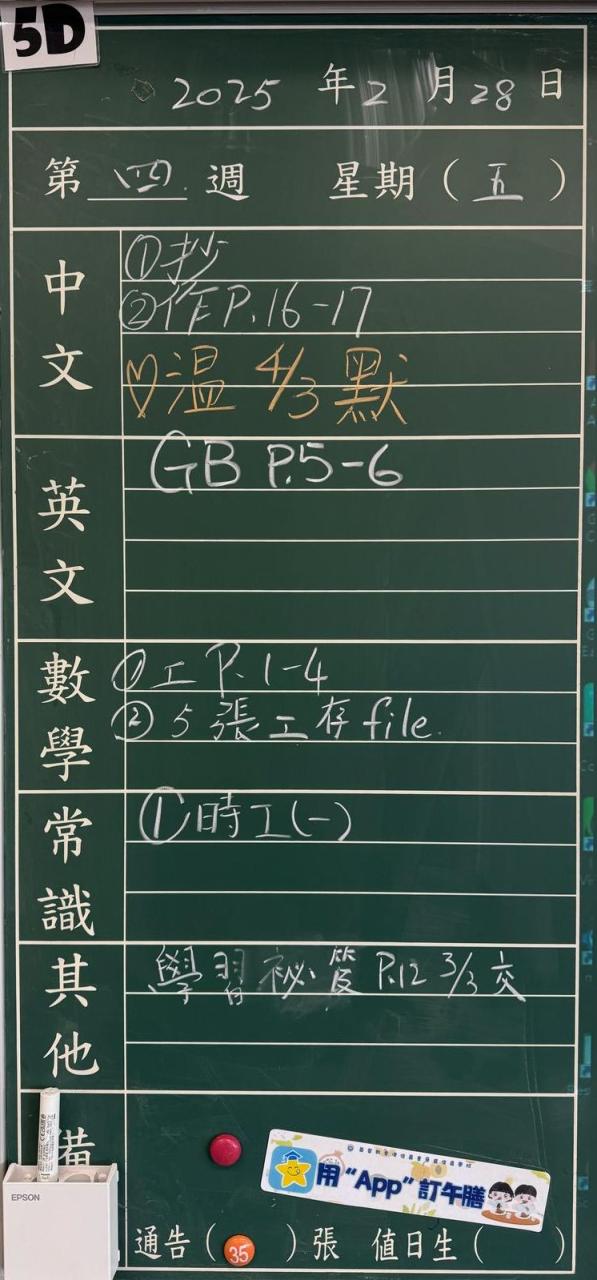 5D
2025 年 2 月 28 日
第 四 週 星期（五）
中文
①抄
②作P.16-17
♡溫 4/3 默
英文
GB P.5-6
數學
①工 P.1-4
② 5張工存file.
常識
①時工(一)
其他
學習祕笈 P.12 3/3 交
備
用“App”訂午膳
EPSON
通告（35）張 值日生（ ）